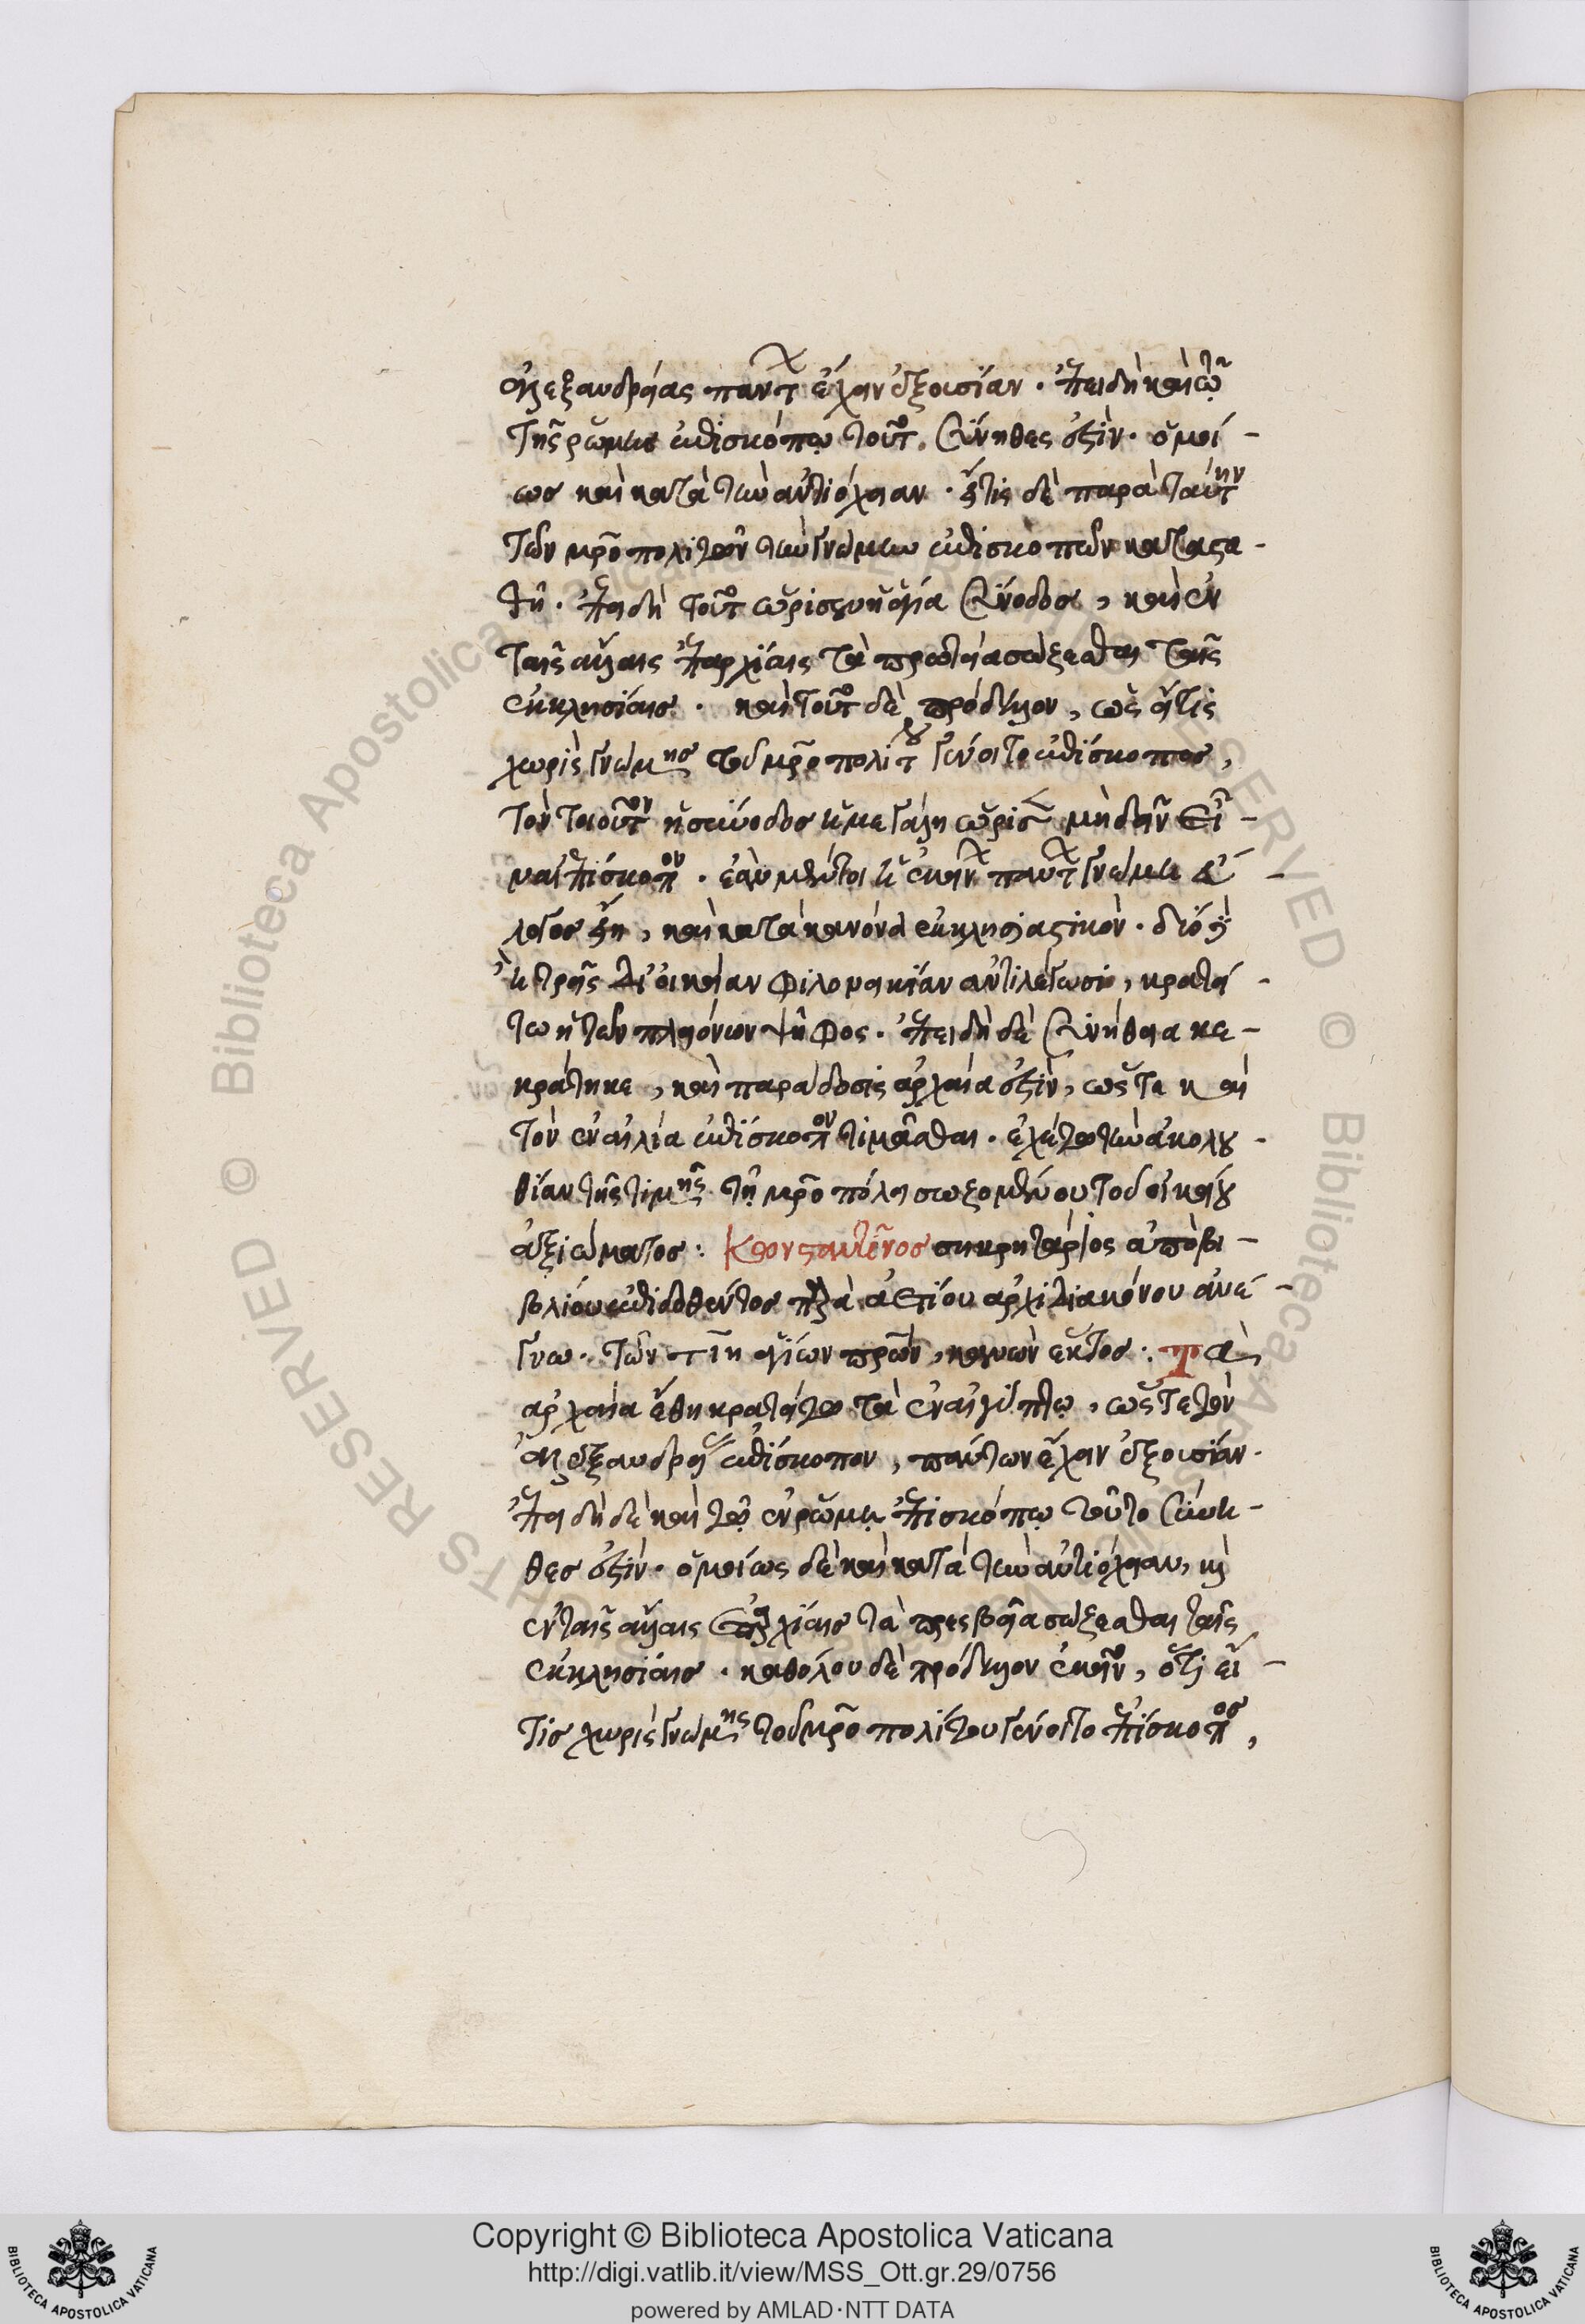 ἀλεξανδρείας πάντ ἔχειν ἐξουσίαν · ἐπειδὴ καὶ τῷ
τῆς ῥώμης ἐπισκόπῳ τοῦτο σύνηθες ἐστὶν · ὁμοί -
ως καὶ κατὰ τὴν ἀντιόχειαν · ἔτις δὲ παρὰ ταύτην
τῶν μητροπολιτῶν τὴν γνώμην ἐπίσκοπων κατασα -
θῆ · ἐπειδὴ τοῦτο ὥρισεν ἡ ἁγία σύνοδος , καὶ ἐν
ταῖς ἄλλαις ἐπαρχίαις τὰ πρωτεῖα σώζεσθαι ταῖς
ἐκκλησίαις · καὶ τοῦτο δὲ πρόδηλον , ὡς εἴτις
χωρὶς γνώμης τοῦ μητροπολίτου γένοιτο ἐπίσκοπος ,
τὸν τοιοῦτον ἡ σύνοδος ἡ μεγάλη ὥρισε μὴ δεῖν εἶ -
ναι ἐπίσκοπον · ἐὰν μέντοι ἡ ἐκείν πάντ γνώμη εὔ -
λογος ἔῃ , καὶ κατὰ κανόνα ἐκκλησιαστικὸν · δύο ἢ
ἢ τρεῖς δι' οἰκείαν φιλονεικίαν ἀντιλέγωσι , κρατεί -
τω ἡ τῶν πλειόνων ψῆφος · ἐπειδὴ δὲ συνήθεια κε -
κράτηκε , καὶ παράδοσις ἀρχαία ἐστὶν , ὥστε καὶ
τὸν ἐν αἰλία ἐπίσκοπον τιμᾶσθαι · ἐχέτω τὴν ἀκολου -
θίαν τῆς τιμῆς τῇ μητροπόλει σωζομένου τοῦ οἰκείου
ἀξιώματος : Κωνσταντῖνος σηκρητάριος ἀπὸ βι -
βλίου ἐπιδοθέντος παρὰ ἀετίου ἀρχιδιακόνου ἀνέ -
γνω · τῶν τιη ἁγίων πρων , κανὼν ἕκτος : Τὰ
ἀρχαῖα ἔθη κρατείτω τὰ ἐν αἰγύπτῳ , ὥστε τὸν
ἀλεξανδρείας ἐπίσκοπον , πάντων ἔχειν ἐξουσίαν ·
ἐπειδὴ δὲ καὶ τῷ ἐν ῥώμῃ ἐπισκόπῳ τοῦτο σύνη -
θες ἐστὶν · ὁμοίως δὲ καὶ κατὰ τὴν ἀντιόχειαν , καὶ
ἐν ταῖς ἄλλαις ἐπαρχίαις τὰ πρεσβεῖα σώζεσθαι ταῖς
ἐκκλησίαις · καθόλου δὲ πρόδηλον ἐκεῖνο , ὅτι εἴ -
τις χωρὶς γνώμης τοῦ μητροπολίτου γένοιτο ἐπίσκοπος ,
Copyright © Biblioteca Apostolica Vaticana
http://digi.vatlib.it/view/MSS_Ott.gr.29/0756
powered by AMLAD·NTT DATA